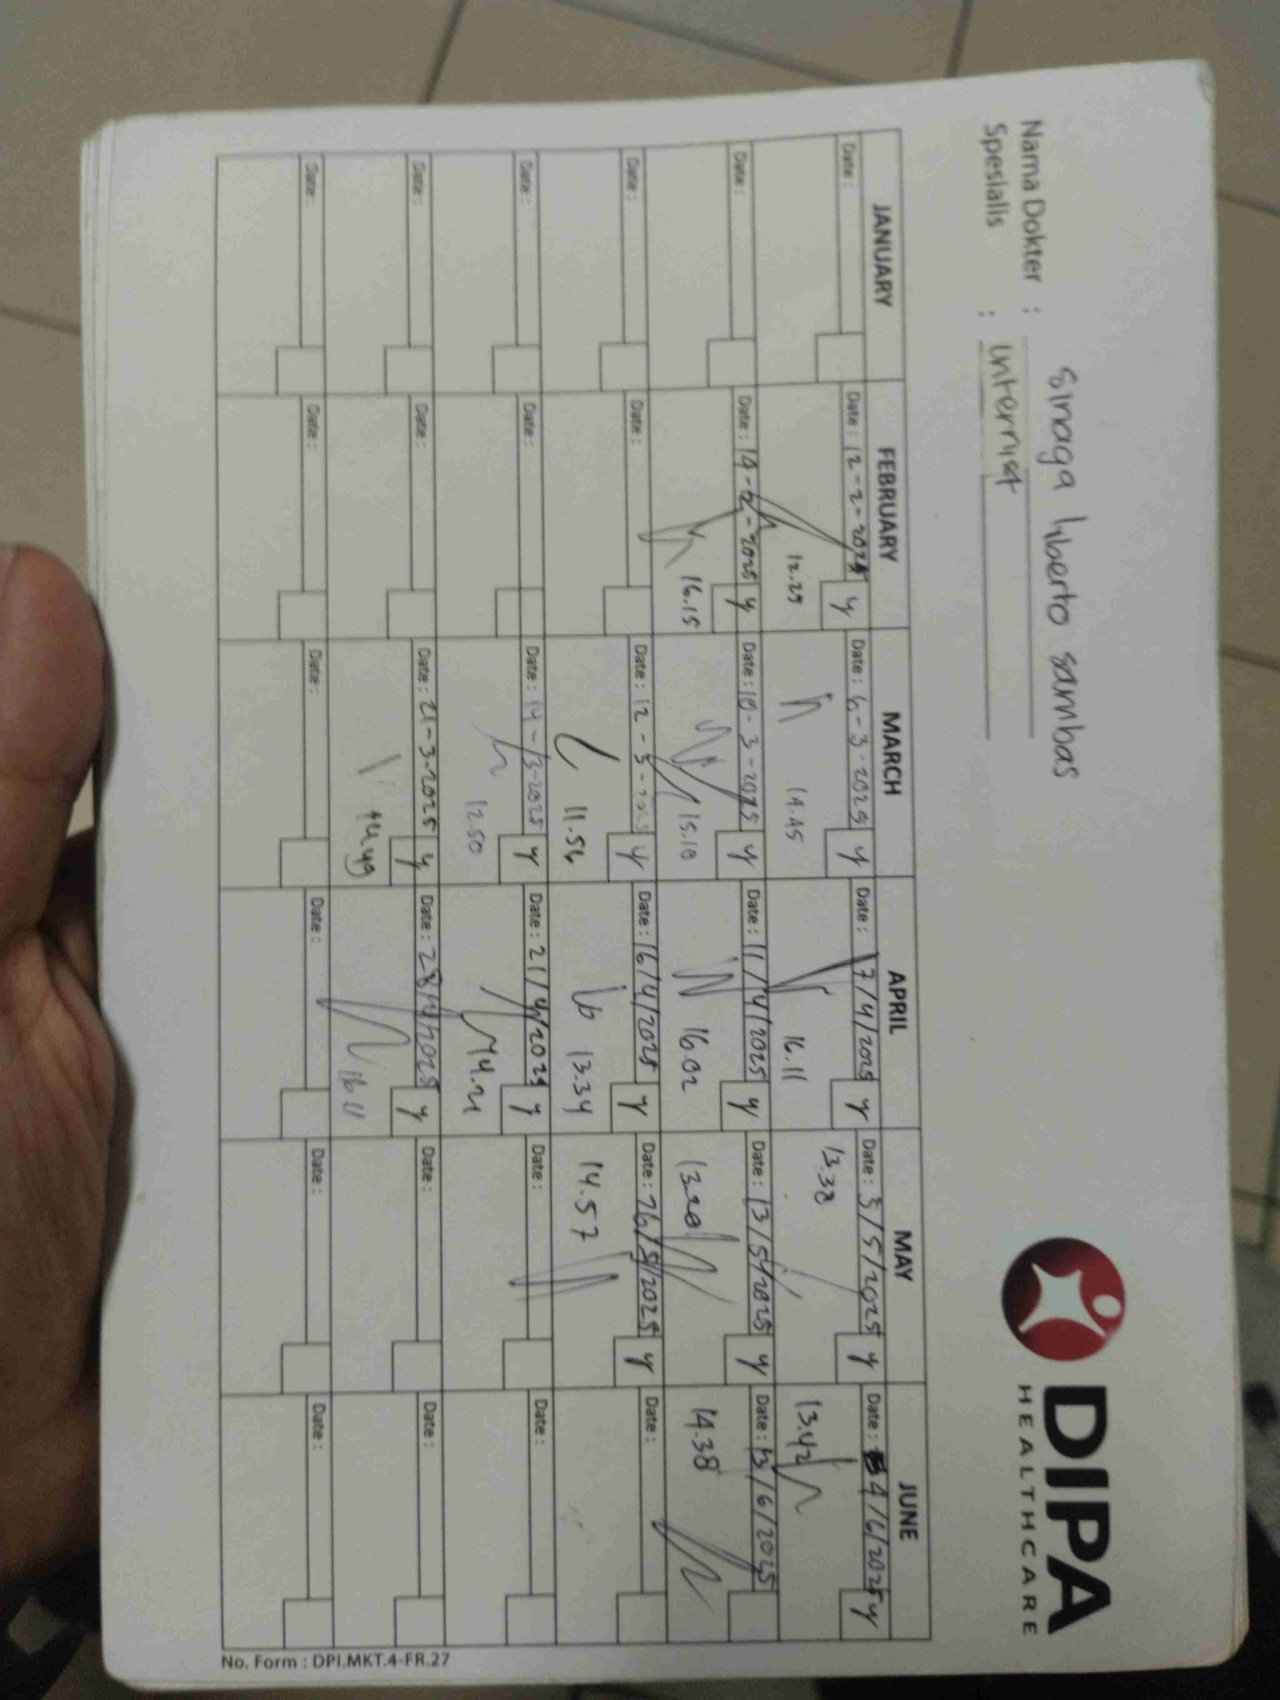 Nama Dokter : sinaga liberto sambas
Spesialis : internist
DIPA
HEALTHCARE
JANUARY FEBRUARY MARCH APRIL MAY JUNE
Date: Date: 12-2-2025 y Date: 6-3-2025 y Date: 7/4/2025 y Date: 5/5/2025 y Date: 4/6/2025 y
12.25 14.45 16.11 13.38 13.42
Date: Date: 14-2-2025 y Date: 10-3-2025 y Date: 11/4/2025 y Date: 13/5/2025 y Date: 13/6/2025
16.15 15.10 16.02 14.38
Date: Date: Date: 12-3-2025 y Date: 16/4/2025 y Date: 26/5/2025 y Date:
11.56 13.34 14.57
Date: Date: Date: 14-3-2025 y Date: 21/4/2025 y Date: Date:
12.50 14.21
Date: Date: Date: 21-3-2025 y Date: 28/4/2025 y Date: Date:
16.11
Date: Date: Date: Date: Date: Date:
No. Form : DPI.MKT.4-FR.27